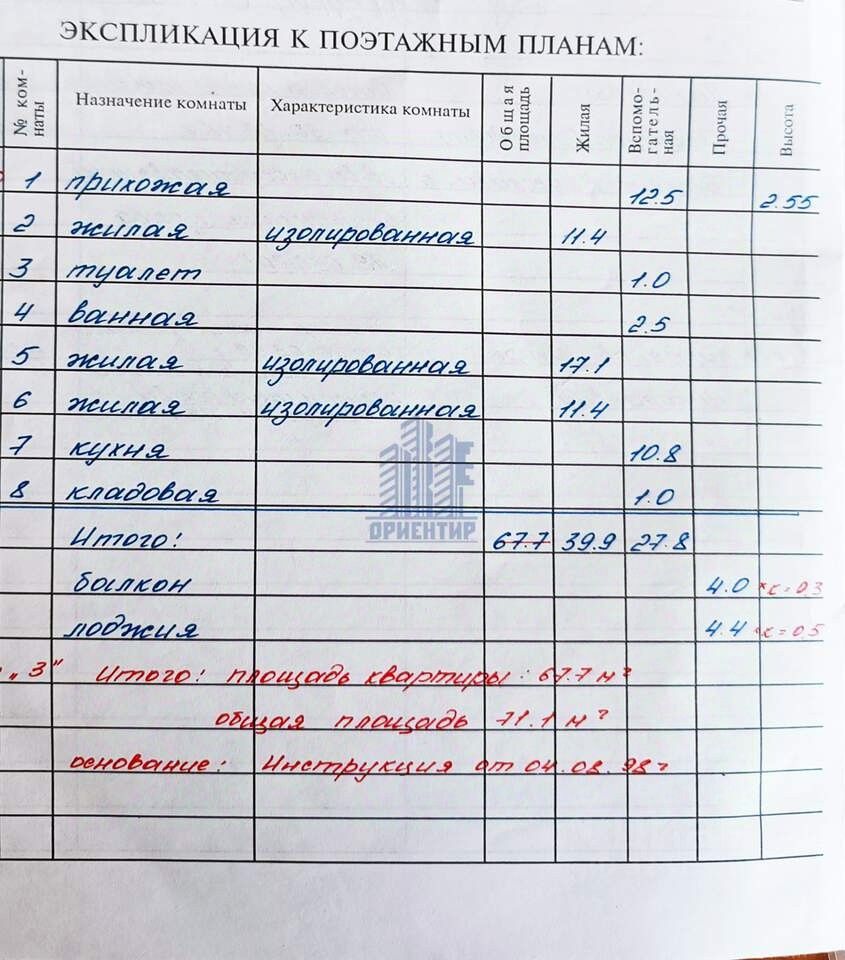 ЭКСПЛИКАЦИЯ К ПОЭТАЖНЫМ ПЛАНАМ:
№ ком-наты Назначение комнаты Характеристика комнаты Общая площадь Жилая Вспомо-гатель-ная Прочая Высота
1 прихожая 12.5 2.55
2 жилая изолированная 11.4
3 туалет 1.0
4 ванная 2.5
5 жилая изолированная 17.1
6 жилая изолированная 11.4
7 кухня 10.8
8 кладовая 1.0
ОРИЕНТИР
Итого: 67.7 39.9 27.8
балкон 4.0 *к=0,3
лоджия 4.4 *к=0,5
"3" Итого: площадь квартиры: 67.7 м²
общая площадь 71.1 м²
основание: Инструкция от 04.08.98г